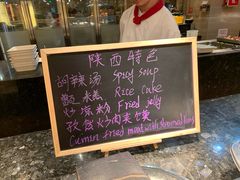 陕西特色
胡辣汤 Spicy soup
甑糕 Rice Cake
炒凉粉 Fried Jelly
孜然炒肉夹馍
Cumin fried meat with steamed buns